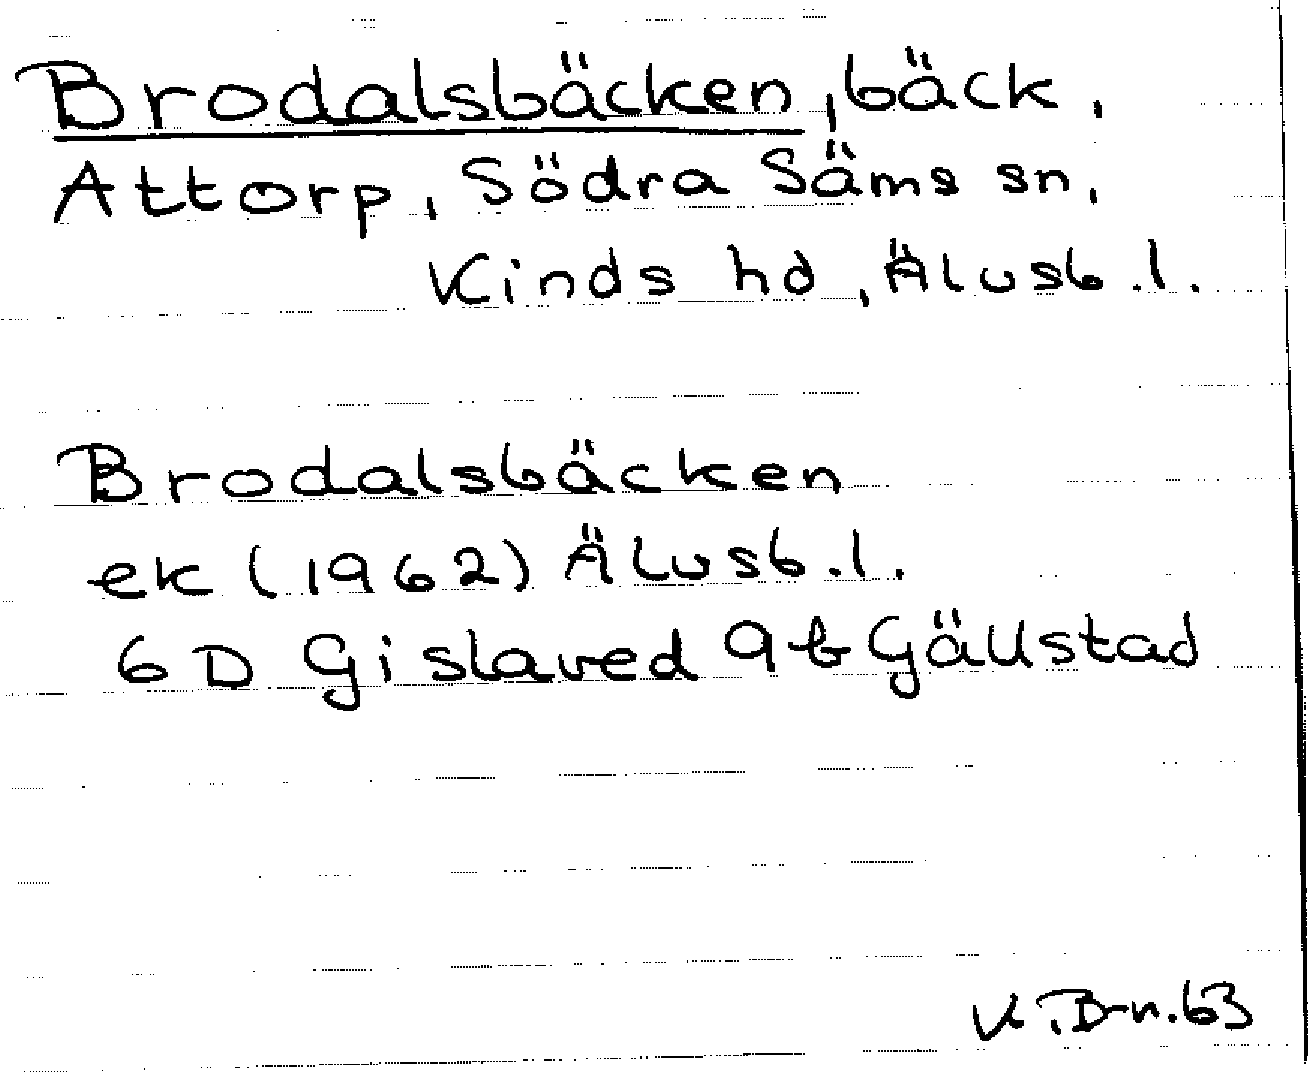 Brodalsbäcken, bäck,
Attorp, Södra Säms sn,
Kinds hd, Älvsb.l.
Brodalsbäcken
ek (1962) Älvsb.l.
6 D Gislaved 9 b Gällstad
K.B-n.63